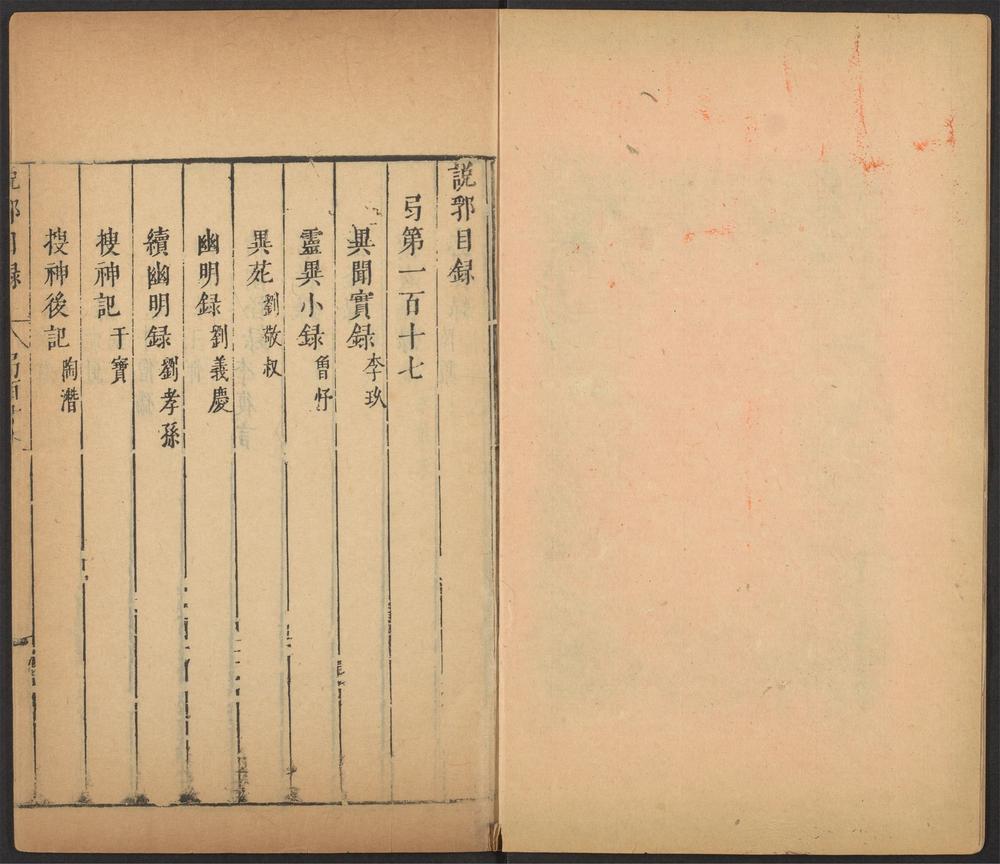 説郛目録
弓第一百十七
異聞實録 李玖
靈異小録 曾忬
異苑 劉敬叔
幽明録 劉義慶
續幽明録 劉孝孫
搜神記 干寶
搜神後記 陶潛
説郛目録